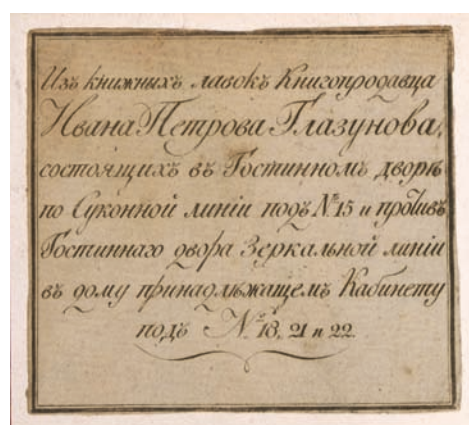 Изъ книжныхъ лавокъ Книгопродавца
Ивана Петрова Глазунова,
состоящихъ въ Гостинномъ дворѣ
по Суконной линіи подъ № 15 и противъ
Гостиннаго двора Зеркальной линіи
въ дому принадлѣжащемъ Кабинету
подъ № 18, 21 и 22.